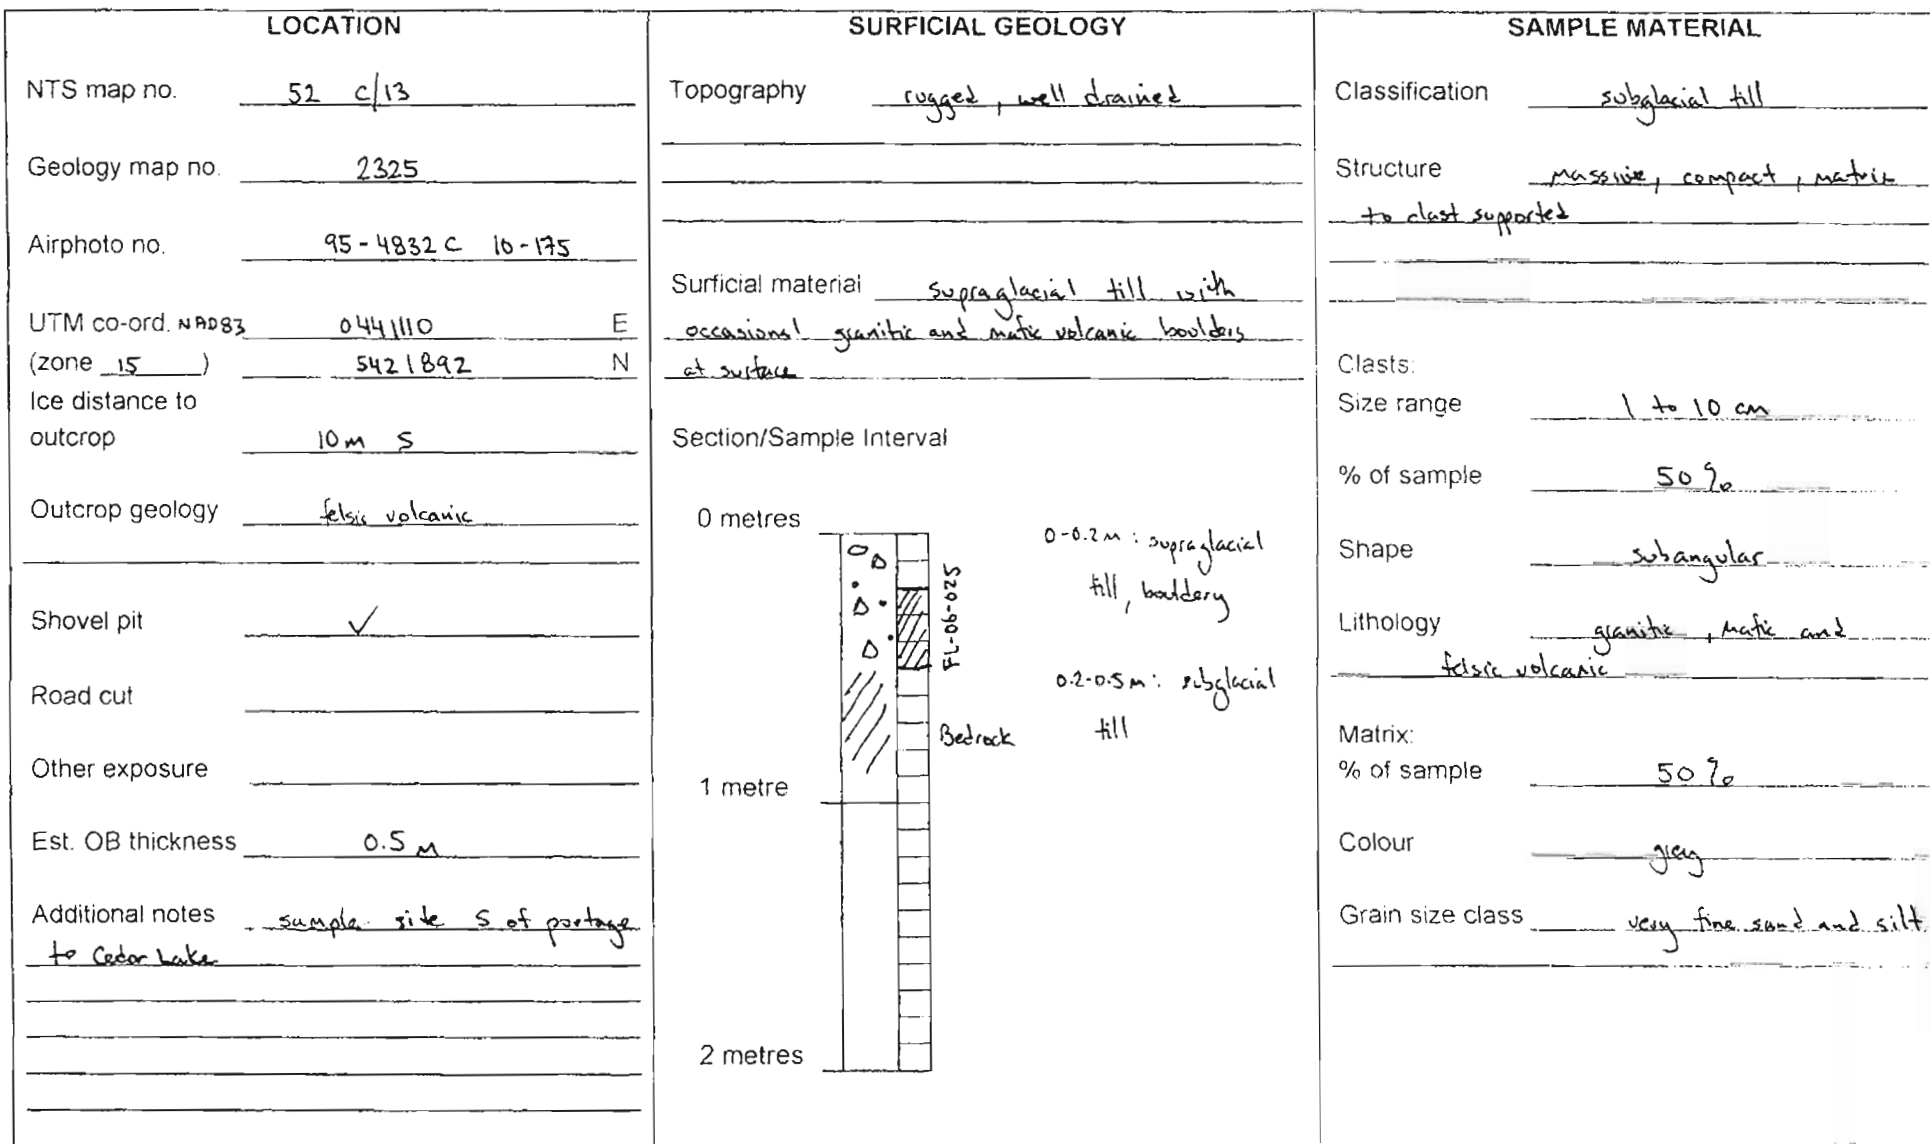 LOCATION
NTS map no. 52 c/13
Geology map no. 2325
Airphoto no. 95-4832 C 10-175
UTM co-ord. NAD83 0441110 E
(zone 15) 5421892 N
Ice distance to
outcrop 10 m S
Outcrop geology felsic volcanic
Shovel pit ✓
Road cut
Other exposure
Est. OB thickness 0.5 m
Additional notes sample site S of portage
to Cedar Lake
SURFICIAL GEOLOGY
Topography rugged, well drained
Surficial material supraglacial till with
occasional granitic and mafic volcanic boulders
at surface
Section/Sample Interval
0 metres
0-0.2 m : supraglacial
till, bouldery
FL-06-025
0.2-0.5 m : subglacial
till
Bedrock
1 metre
2 metres
SAMPLE MATERIAL
Classification subglacial till
Structure massive, compact, matrix
to clast supported
Clasts:
Size range 1 to 10 cm
% of sample 50 %
Shape subangular
Lithology granitic, mafic and
felsic volcanic
Matrix:
% of sample 50 %
Colour grey
Grain size class very fine sand and silt